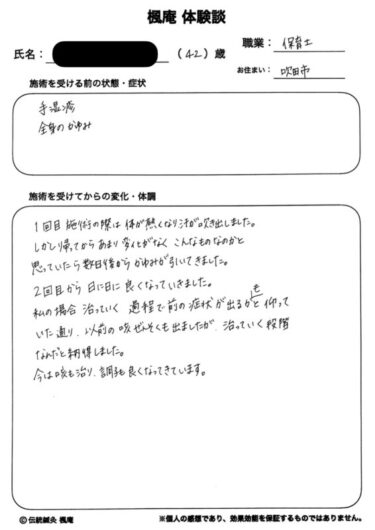 楓庵 体験談
氏名： （42）歳
職業： 保育士
お住まい： 吹田市
施術を受ける前の状態・症状
手湿疹
全身のかゆみ
施術を受けてからの変化・体調
1回目 施術の際は 体が熱くなり汗が吹き出しました。
しかし帰ってからあまり変化がなく こんなものなのかと
思っていたら数日後から かゆみが引いてきました。
2回目から 日に日に 良くなっていきました。
私の場合 治っていく 過程で前の症状が 出るかもと 仰って
いた通り、以前の咳ぜんそくも出ましたが、治っていく段階
なんだと納得しました。
今は咳も治り、調子も良くなってきています。
© 伝統鍼灸 楓庵
※個人の感想であり、効果効能を保証するものではありません。